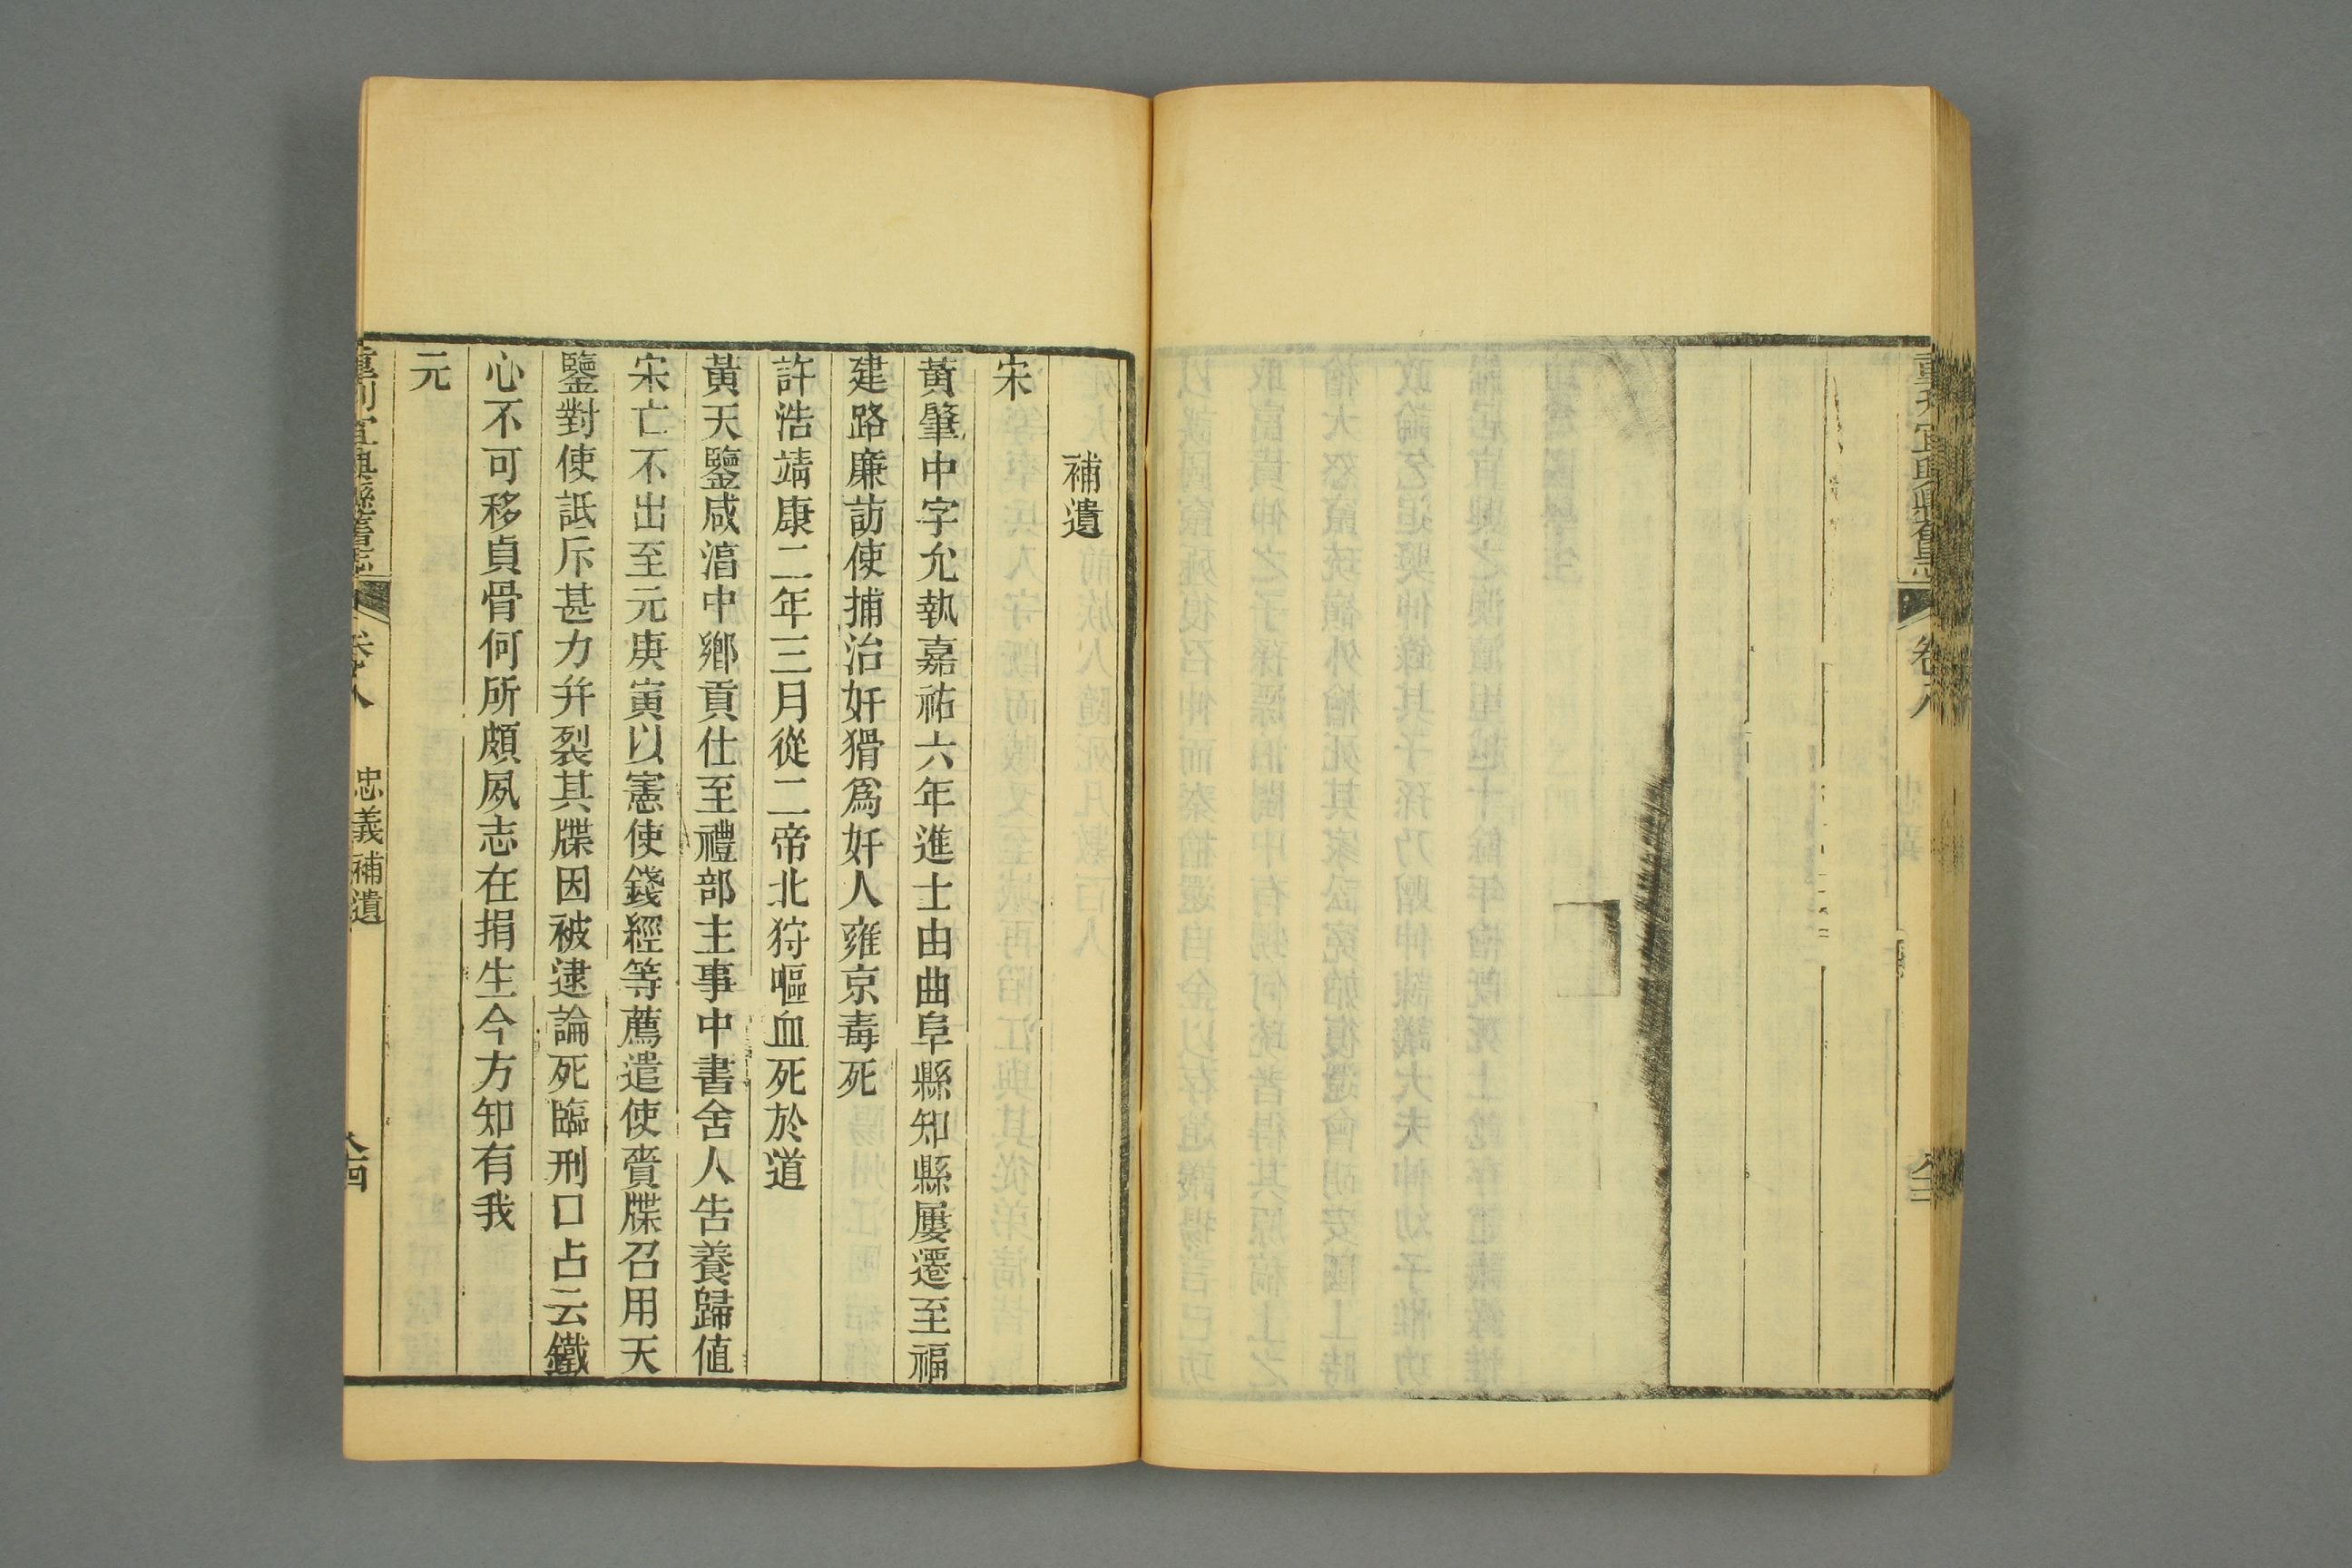 重刊宜興縣舊志
卷八
補遺
宋
黃肇中字允執嘉祐六年進士由曲阜縣知縣屢遷至福
建路廉訪使捕治奸猾爲奸人雍京毒死
許浩靖康二年三月從二帝北狩嘔血死於道
黃天鑒咸淳中鄉貢仕至禮部主事中書舍人告養歸值
宋亡不出至元庚寅以憲使錢經等薦遣使賫牒召用天
鑒對使詆斥甚力并裂其牒因被逮論死臨刑口占云鐵
心不可移貞骨何所頗夙志在捐生今方知有我
元
重刊宜興縣舊志
卷八
忠義補遺
八十四